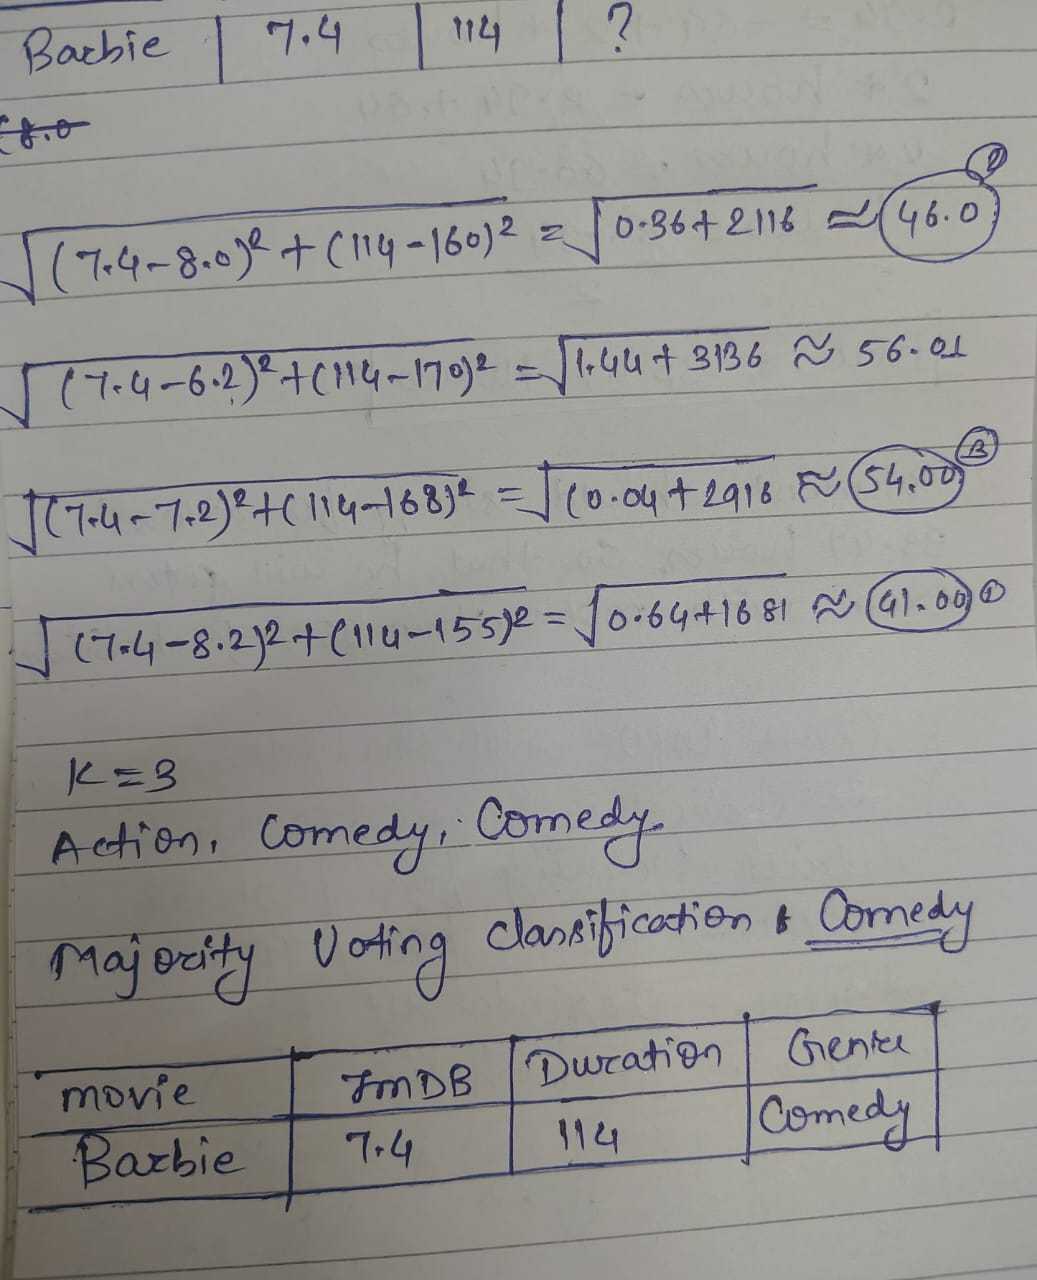 Barbie | 7.4 | 114 | ?
√(7.4-8.0)² + (114-160)² = √0.36+2116 ≈ 46.0 ②
√(7.4-6.2)² + (114-170)² = √1.44+3136 ≈ 56.01
√(7.4-7.2)² + (114-168)² = √(0.04+2916 ≈ 54.00 ③
√(7.4-8.2)² + (114-155)² = √0.64+1681 ≈ 41.00 ①
K=3
Action, Comedy, Comedy
Majority Voting classification : Comedy
movie | IMDB | Duration | Genre
Barbie | 7.4 | 114 | Comedy